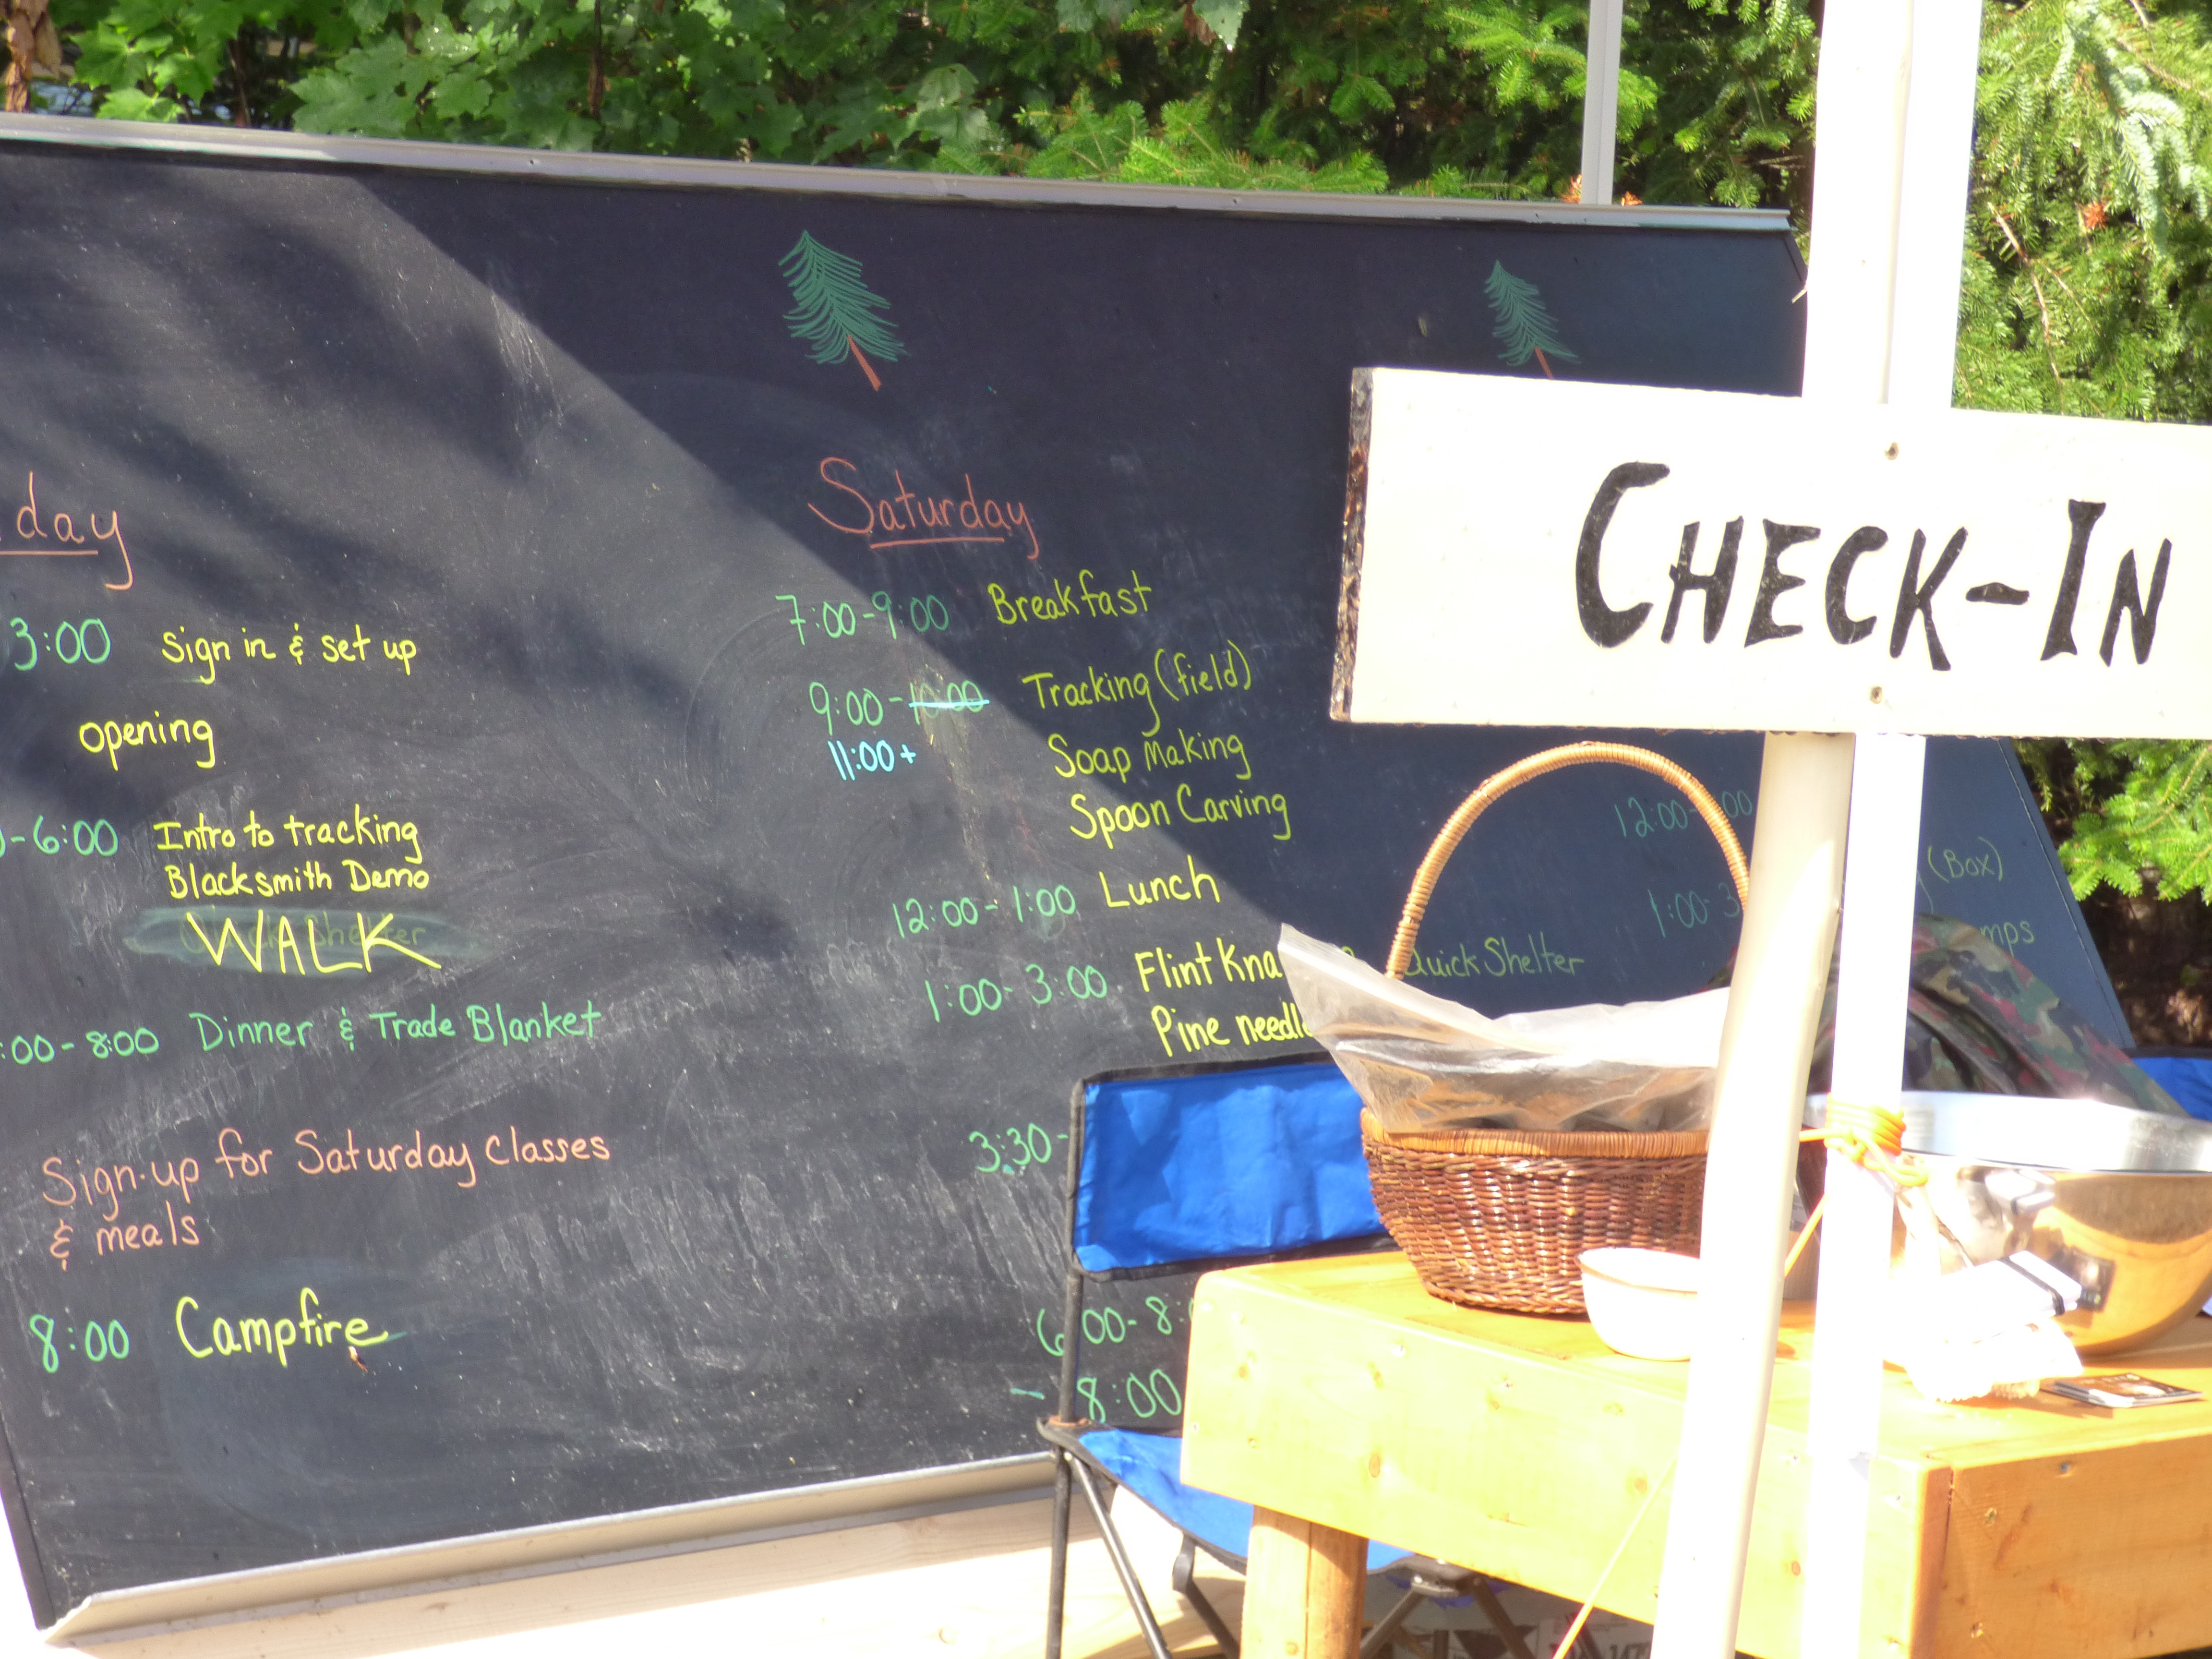 day
3:00 Sign in & set up
opening
-6:00 Intro to tracking
Blacksmith Demo
WALK
:00-8:00 Dinner & Trade Blanket
Sign-up for Saturday Classes
& meals
8:00 Campfire
Saturday
7:00-9:00 Breakfast
9:00-10:00 Tracking (field)
11:00+ Soap Making
Spoon Carving
12:00-1:00 Lunch
1:00-3:00 Flint Kna
Quick Shelter
Pine needle
3:30-
6:00-8:
- 8:00
12:00- 00
1:00-3
(Box)
mps
CHECK-IN